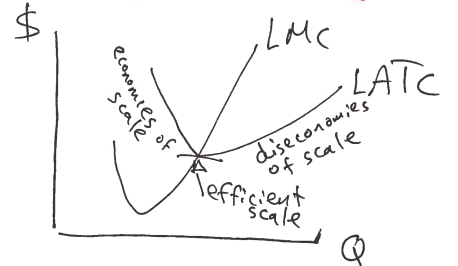 $
LMC
LATC
economies of
scale
diseconomies
of scale
efficient
scale
Q